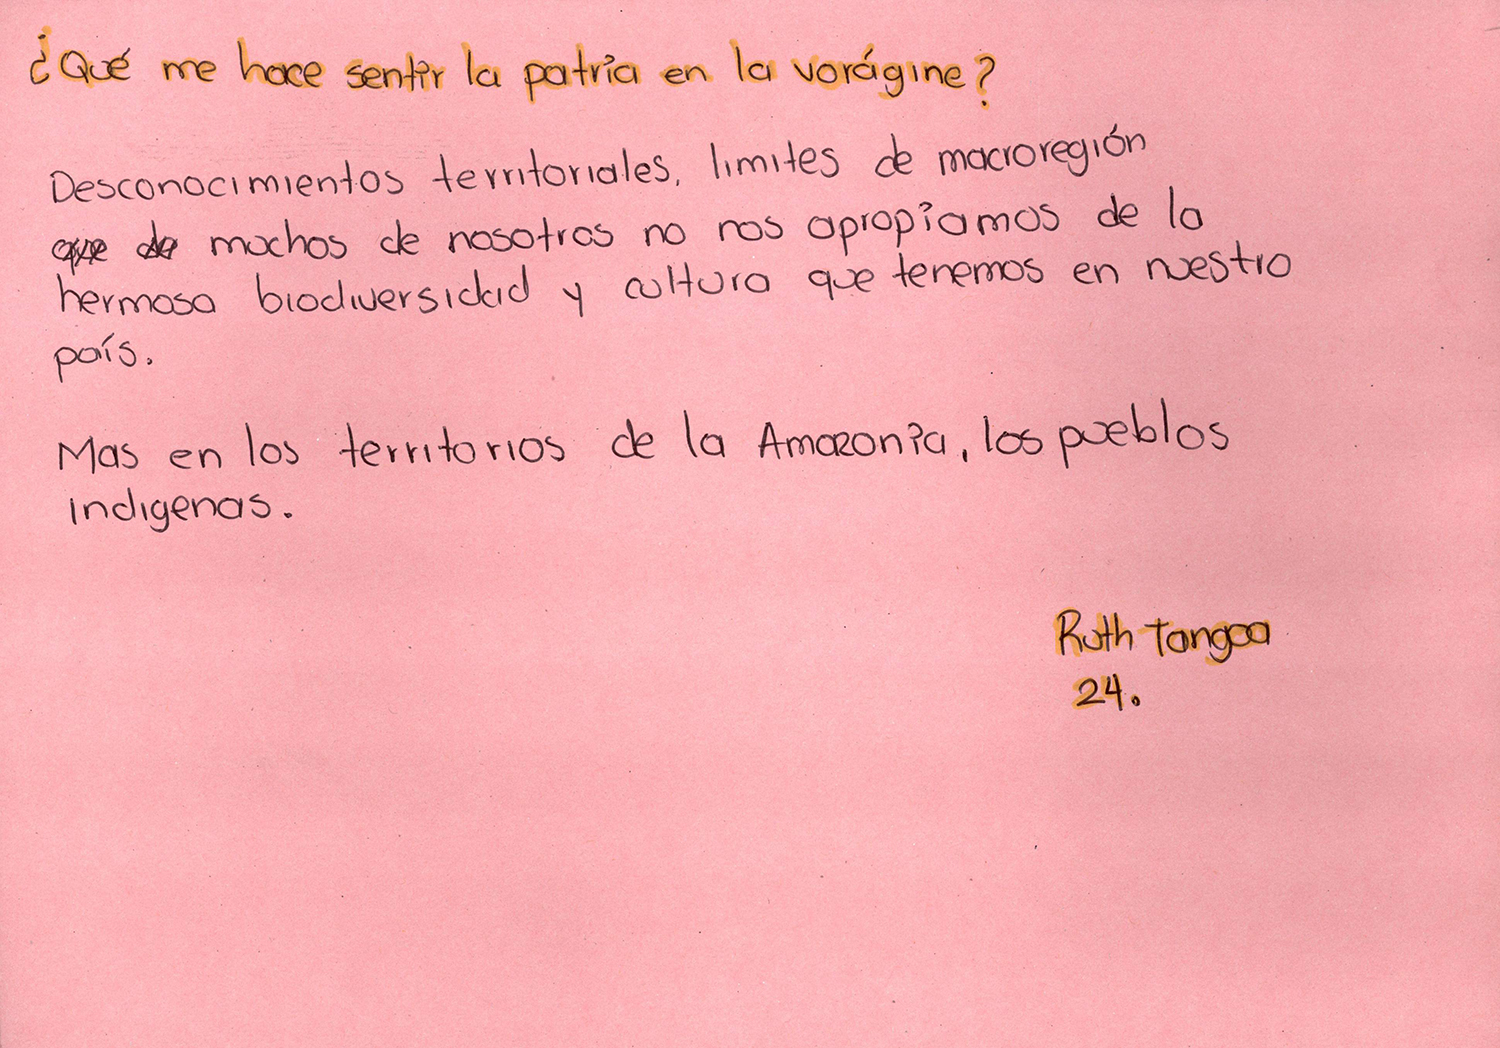 ¿Qué me hace sentir la patria en la vorágine?
Desconocimientos territoriales, limites de macroregión
que de muchos de nosotros no nos apropiamos de la
hermosa biodiversidad y cultura que tenemos en nuestro
país.
Mas en los territorios de la Amazonia, los pueblos
indigenas.
Ruth Tangoa
24.